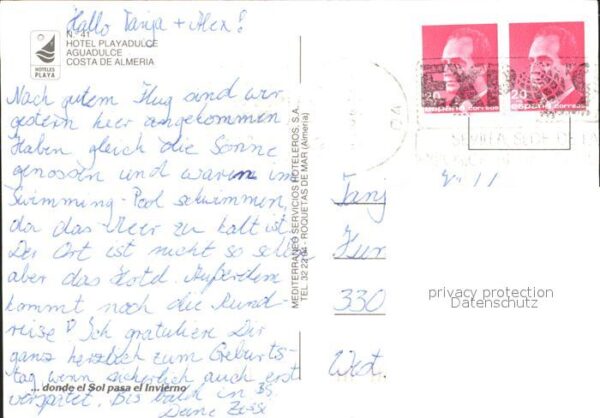 Hallo Tanja + Alex!
Nº 41
HOTEL PLAYADULCE
AGUADULCE
COSTA DE ALMERIA
HOTELES
PLAYA
Nach gutem Flug sind wir
gestern hier angekommen
Haben gleich die Sonne
genossen und waren im
Swimming-Pool schwimmen,
da das Meer zu kalt ist.
Der Ort ist nicht so schön
aber das Hotel. Außerdem
kommt noch die Rund-
reise! Ich gratuliere Dir
ganz herzlich zum Geburts-
tag wenn sicherlich auch erst
verspätet. Bis bald in
Deine
... donde el Sol pasa el Invierno
MEDITERRANEO SERVICIOS HOTELEROS, S.A.
TEL. 32 22 04 - ROQUETAS DE MAR (Almeria)
20
españa correos
20
españa correos
SEVILLA SEDE DE LA
Tanj
330
privacy protection
Datenschutz